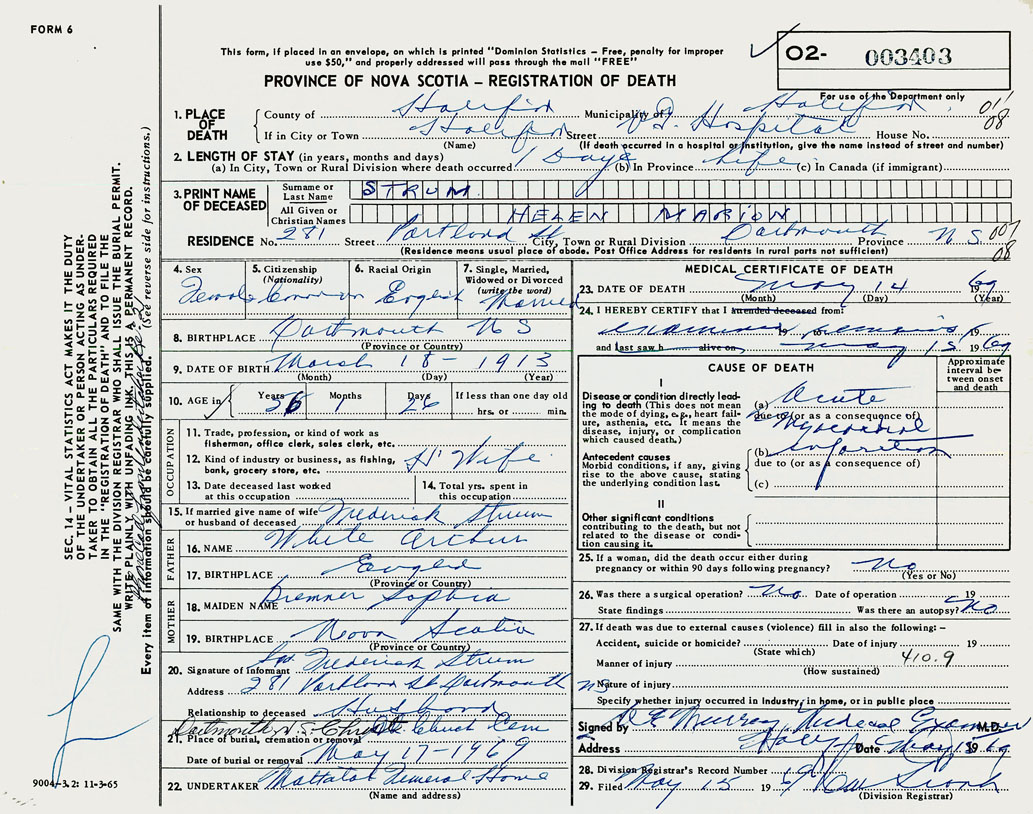 FORM 6
This form, if placed in an envelope, on which is printed "Dominion Statistics – Free, penalty for improper
use $50," and properly addressed will pass through the mail "FREE"
PROVINCE OF NOVA SCOTIA – REGISTRATION OF DEATH
O2- 003403
For use of the Department only
011
08
1. PLACE OF DEATH
County of Halifax Municipality of Halifax
If in City or Town Halifax Street V.G. Hospital House No.
(Name) (If death occurred in a hospital or institution, give the name instead of street and number)
2. LENGTH OF STAY (in years, months and days)
(a) In City, Town or Rural Division where death occurred 1 Day (b) In Province Life (c) In Canada (if immigrant)
3. PRINT NAME OF DECEASED
Surname or Last Name STRUM
All Given or Christian Names HELEN MARION
RESIDENCE No. 281 Street Portland St City, Town or Rural Division Dartmouth Province N S. 007
08
(Residence means usual place of abode. Post Office Address for residents in rural parts not sufficient)
4. Sex Female
5. Citizenship (Nationality) Canadian
6. Racial Origin English
7. Single, Married, Widowed or Divorced (write the word) Married
8. BIRTHPLACE Dartmouth N S
(Province or Country)
9. DATE OF BIRTH March 18 - 1913
(Month) (Day) (Year)
10. AGE in Years 56 Months 1 Days 26 If less than one day old
hrs. or min.
OCCUPATION
11. Trade, profession, or kind of work as
fisherman, office clerk, sales clerk, etc.
12. Kind of industry or business, as fishing,
bank, grocery store, etc. H' Wife
13. Date deceased last worked
at this occupation
14. Total yrs. spent in
this occupation
15. If married give name of wife
or husband of deceased Frederick Strum
FATHER
16. NAME White Arthur
17. BIRTHPLACE England
(Province or Country)
MOTHER
18. MAIDEN NAME Bremner Sophia
19. BIRTHPLACE Nova Scotia
(Province or Country)
20. Signature of Informant Frederick Strum
Address 281 Portland St Dartmouth NS
Relationship to deceased Husband
Dartmouth N.S. Christ Church Cem
21. Place of burial, cremation or removal
Date of burial or removal May 17-1969
22. UNDERTAKER Mattatall Funeral Home
(Name and address)
MEDICAL CERTIFICATE OF DEATH
23. DATE OF DEATH May 14 1969
(Month) (Day) (Year)
24. I HEREBY CERTIFY that I attended deceased from:
examined 19 to remains 19
and last saw h alive on May 15 1969
CAUSE OF DEATH
Approximate interval between onset and death
I
Disease or condition directly leading
to death (This does not mean
the mode of dying, e.g., heart failure,
asthenia, etc. It means the
disease, injury, or complication
which caused death.)
(a) Acute
due to (or as a consequence of)
Myocardial
Antecedent causes
Morbid conditions, if any, giving
rise to the above cause, stating
the underlying condition last.
(b) infarction
due to (or as a consequence of)
(c)
II
Other significant conditions
contributing to the death, but not
related to the disease or condition
causing it.
25. If a woman, did the death occur either during
pregnancy or within 90 days following pregnancy? No
(Yes or No)
26. Was there a surgical operation? No Date of operation 19
State findings Was there an autopsy? No
27. If death was due to external causes (violence) fill in also the following: –
Accident, suicide or homicide? Date of injury 19
(State which) 410.9
Manner of injury
(How sustained)
Nature of injury
Specify whether injury occurred in Industry, in home, or in public place
Signed by Murray Medical Examiner M.D.
Address Halifax Date May 15 1969
28. Division Registrar's Record Number
29. Filed May 15 1969
(Division Registrar)
SEC. 14 – VITAL STATISTICS ACT MAKES IT THE DUTY
OF THE UNDERTAKER OR PERSON ACTING AS UNDERTAKER
TO OBTAIN ALL THE PARTICULARS REQUIRED
IN THE "REGISTRATION OF DEATH" AND TO FILE THE
SAME WITH THE DIVISION REGISTRAR WHO SHALL ISSUE THE BURIAL PERMIT.
WRITE PLAINLY WITH UNFADING INK. THIS IS A PERMANENT RECORD.
Every item of information should be carefully supplied. (See reverse side for instructions.)
9004-3.2: 11-3-65